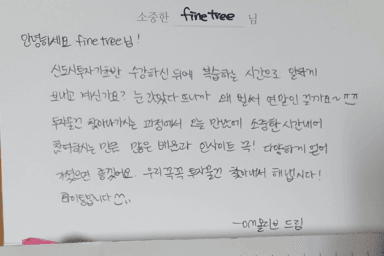 소중한 fine tree 님
안녕하세요 fine tree 님!
신도시투자기초반 수강하신 뒤에 복습하는 시간으로 알차게
보내고 계신가요? 눈 감았다 뜨니까 왜 벌써 연말인 걸까요~ㅠㅠ
투자물건 찾아나가시는 과정에서 오늘 만남에 소중한 시간내어
참여하시는 만큼 많은 배움과 인사이트 꼭! 다양하게 얻어
가셨으면 좋겠어요. 우리 꼭꼭 투자물건 찾아내서 해냅시다!
화이팅입니다
드림